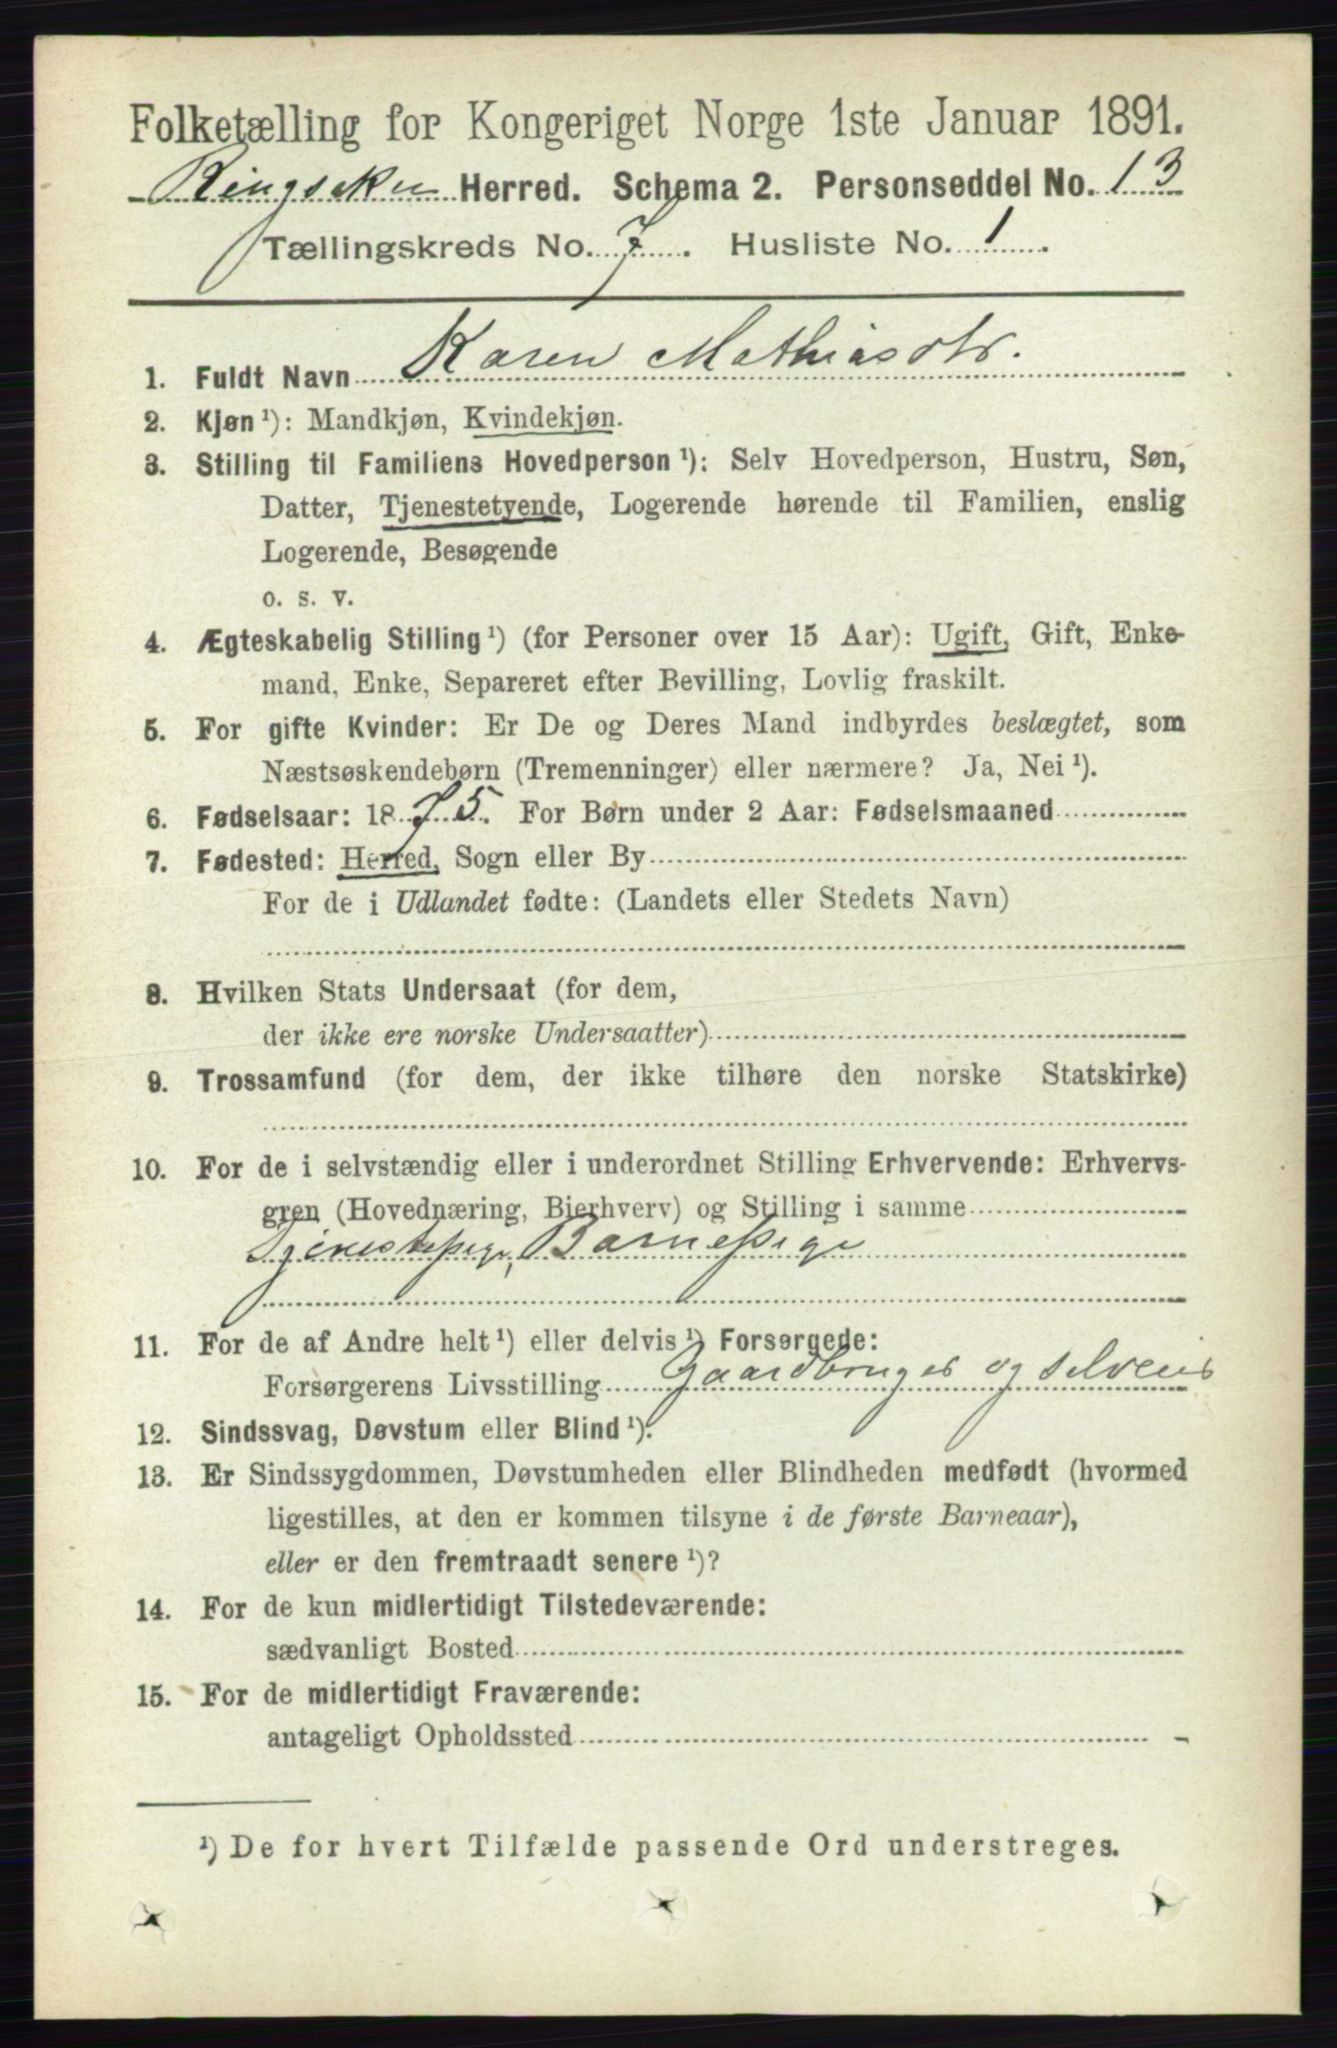 Folketælling for Kongeriget Norge 1ste Januar 1891.
Ringsaker Herred. Schema 2. Personseddel No. 13
Tællingskreds No. 7. Husliste No. 1.
1. Fuldt Navn Karen Mathiasdtr.
2. Kjøn ¹): Mandkjøn, Kvindekjøn.
3. Stilling til Familiens Hovedperson ¹): Selv Hovedperson, Hustru, Søn,
Datter, Tjenestetyende, Logerende hørende til Familien, enslig
Logerende, Besøgende
o. s. v.
4. Ægteskabelig Stilling ¹) (for Personer over 15 Aar): Ugift, Gift, Enke-
mand, Enke, Separeret efter Bevilling, Lovlig fraskilt.
5. For gifte Kvinder: Er De og Deres Mand indbyrdes beslægtet, som
Næstsøskendebørn (Tremenninger) eller nærmere? Ja, Nei ¹).
6. Fødselsaar: 1875. For Børn under 2 Aar: Fødselsmaaned
7. Fødested: Herred, Sogn eller By
For de i Udlandet fødte: (Landets eller Stedets Navn)
8. Hvilken Stats Undersaat (for dem,
der ikke ere norske Undersaatter)
9. Trossamfund (for dem, der ikke tilhøre den norske Statskirke)
10. For de i selvstændig eller i underordnet Stilling Erhvervende: Erhvervs-
gren (Hovednæring, Bierhverv) og Stilling i samme
Tjenestepige, Barnepige
11. For de af Andre helt ¹) eller delvis ¹) Forsørgede:
Forsørgerens Livsstilling Gaardbruger og selveier
12. Sindssvag, Døvstum eller Blind ¹).
13. Er Sindssygdommen, Døvstumheden eller Blindheden medfødt (hvormed
ligestilles, at den er kommen tilsyne i de første Barneaar),
eller er den fremtraadt senere ¹)?
14. For de kun midlertidigt Tilstedeværende:
sædvanligt Bosted
15. For de midlertidigt Fraværende:
antageligt Opholdssted
¹) De for hvert Tilfælde passende Ord understreges.